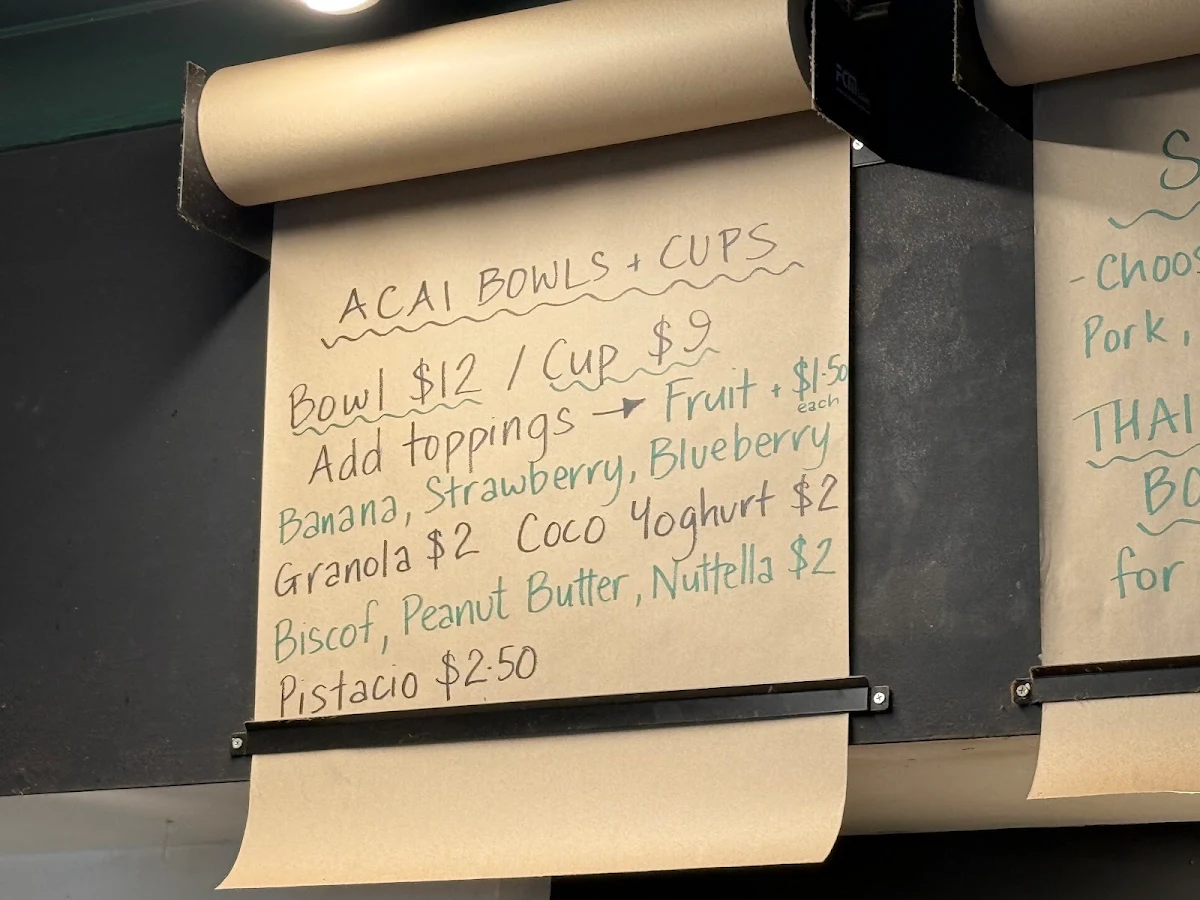 ACAI BOWLS + CUPS
Bowl $12 / Cup $9
Add toppings → Fruit + $1.50 each
Banana, Strawberry, Blueberry
Granola $2 Coco Yoghurt $2
Biscof, Peanut Butter, Nuttella $2
Pistacio $2.50
S
- Choos
Pork,
THAI
BO
for